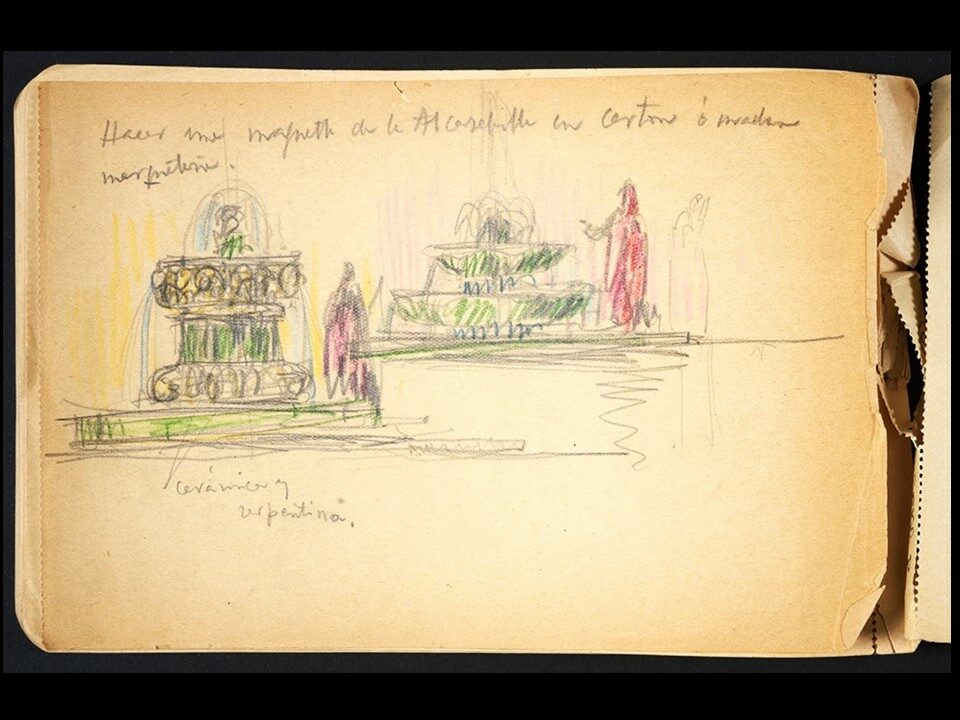 Hacer una maquette de la Alcaicería en carton ó madera
marquetería.
cerámica y
serpentina.